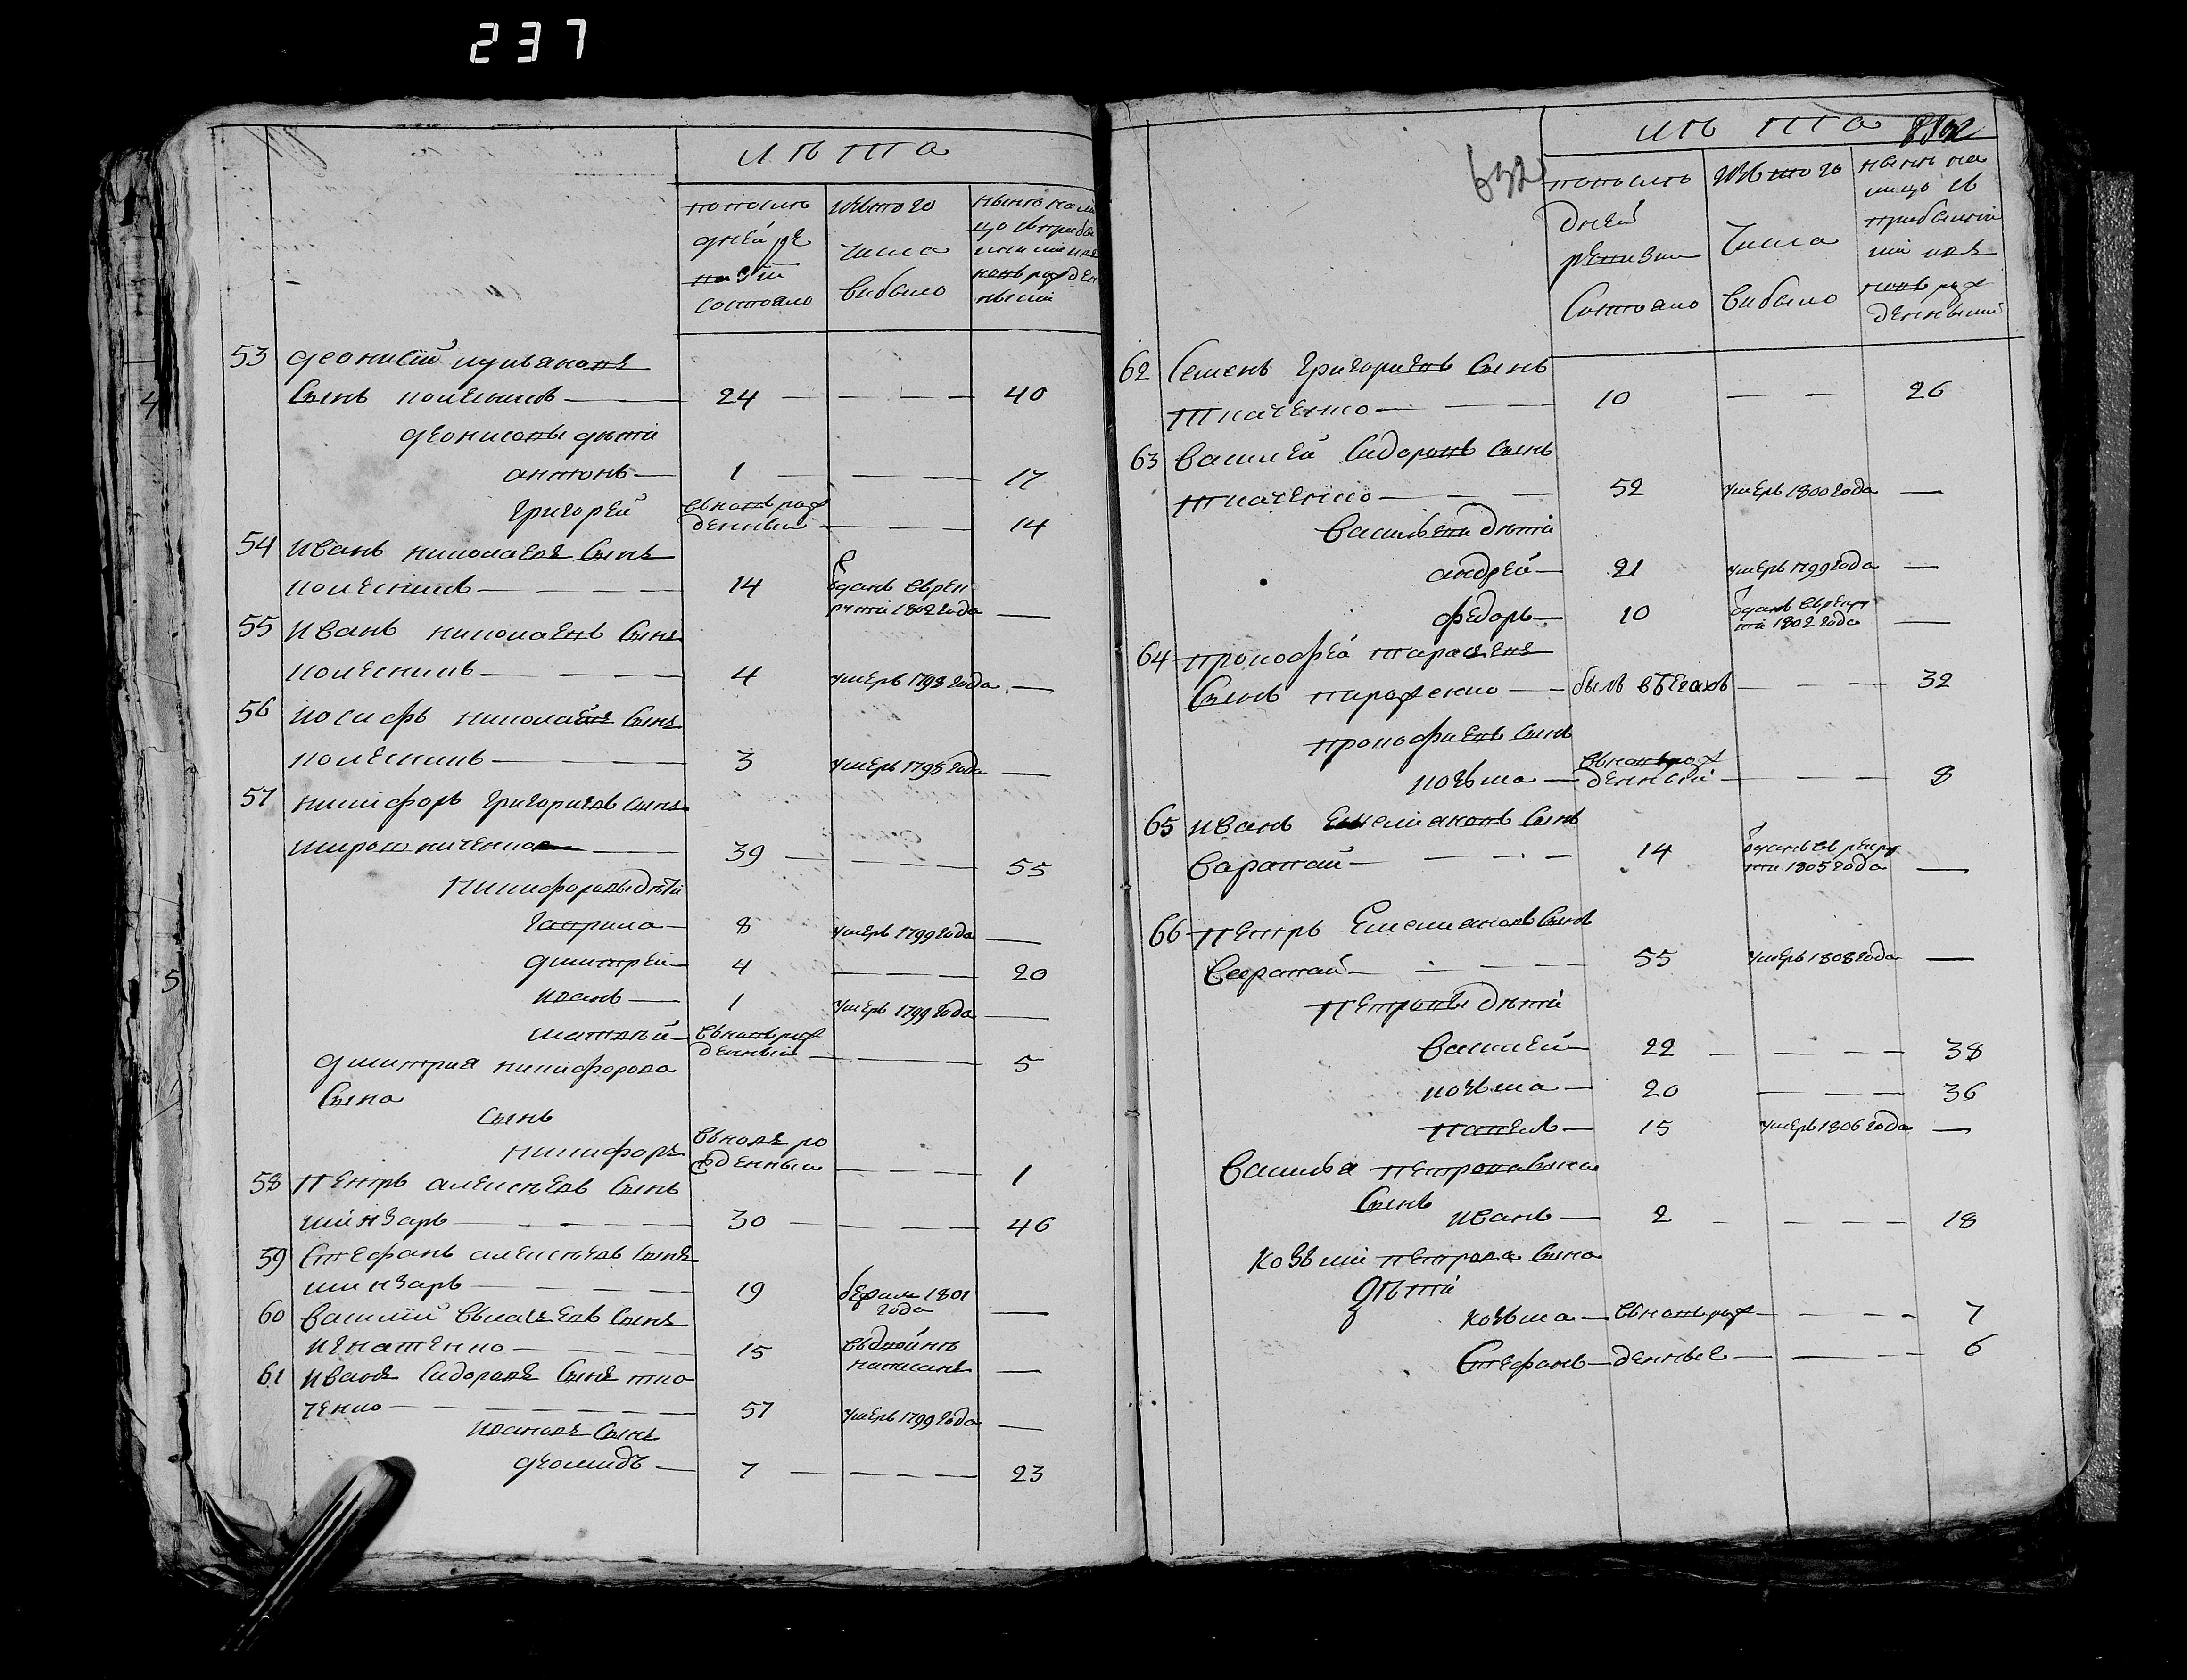 237
лѣта
попослѣ
дней ре
визiи
состояло
изътого
числа
выбыло
нынѣ на ли
цо съприбы
лыми ивъ
новъ рожден
ными
53 Деонисiй лукьяновъ
сынъ колесникъ — 24 — — — — 40
деонисовы дѣти
антонъ — 1 — — — 17
Григорей вьновъ рож
денный — — — 14
54 Иванъ николаевъ сынъ
колесникъ — — — — 14 Отданъ врек
руты 1802 года —
55 Иванъ николаевъ сынъ
колесникъ — — — 4 умеръ 1798 года —
56 Иосифъ николаевъ сынъ
колесникъ — — — 3 умеръ 1798 года —
57 никифоръ григориевъ сынъ
мирошниченко — 39 — — — — 55
Никифоровы дѣти
гаврила — 8 умеръ 1799 года —
дмитрей — 4 — — — — 20
иванъ — 1 умеръ 1799 года —
матвѣй — вьновъ рож
денный — — — 5
дмитрия никифорова
сына
сынъ
никифоръ вьновъ ро
жденный — — — 1
58 Петръ алексѣевъ сынъ
шинкарь — — — 30 — — — — 46
59 Стефанъ алексѣевъ сынъ
шинкарь — — — 19 бежалъ 1801
года —
60 Василiй
игнатенко — — — 15 вьдвойнѣ
написанъ —
61 Иванъ Сидоровъ сынъ тка
ченко — — — — 57 умеръ 1799 года —
Ивановъ сынъ
деомидъ — 7 — — — — 23
632
лѣта
попослѣ
дней
ревизiи
состояло
изъ того
числа
выбыло
нынѣ на
лицо съ
прибылы
ми ивъ
новъ рож
денными
62 Семенъ Григориевъ сынъ
Ткаченко — — — 10 — — 26
63 Василей Сидоровъ сынъ
ткаченко — — — 52 умеръ 1800 года —
Васильевы дѣти
андрей — 21 умеръ 1799 года —
федоръ — 10 Отданъ врекру
ты 1802 года —
64 прокофей тарасевъ
сынъ тарасенко — былъ вбегахъ — — — 32
прокофиевъ сынъ
козьма — вьновъ рож
денный — — — 8
65 Иванъ Емелиановъ сынъ
Варатай — — — — 14 Отданъ въ рекру
ты 1805 года —
66 Петръ Емелиановъ сынъ
Варатай — — — 55 умеръ 1808 года —
Петровы дѣти
Василей — 22 — — — — 38
козьма — 20 — — — 36
Павелъ — 15 умеръ 1806 года —
Василья петрова сына
сынъ
иванъ — 2 — — — — 18
Козьми петрова сына
дѣти
козьма — вьновъ рож — — — 7
Стефанъ — денные — — — 6